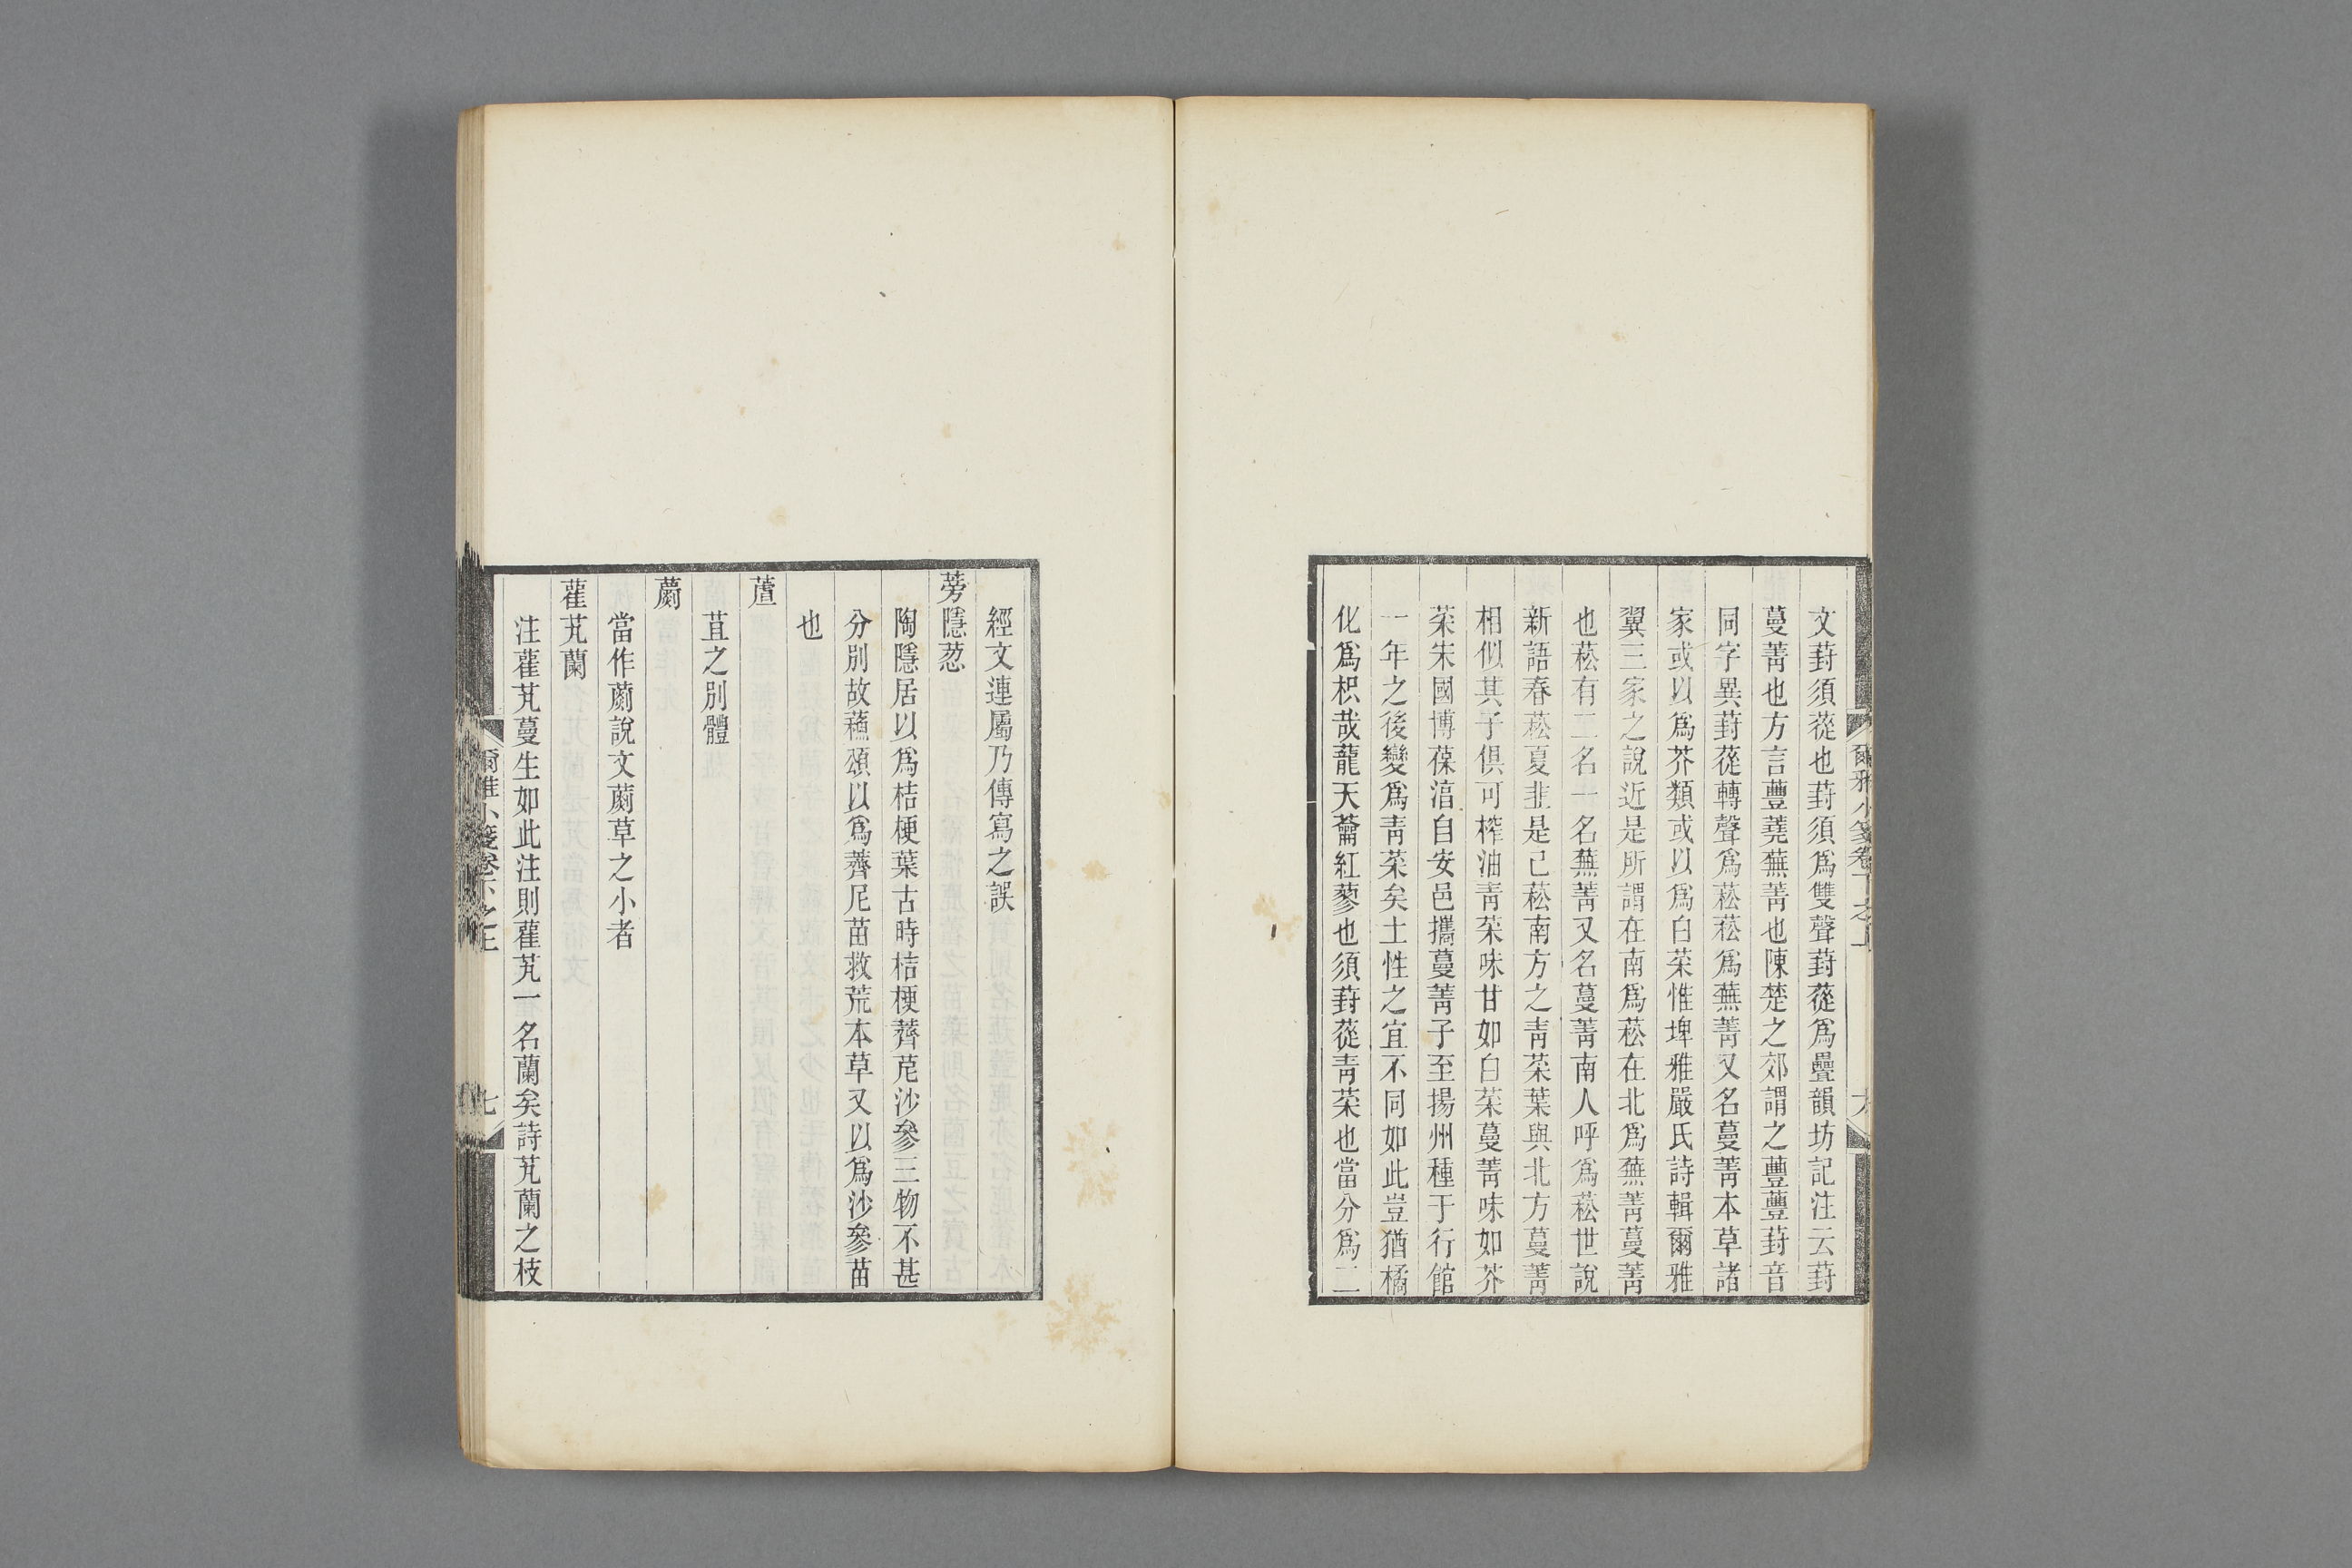 文葑須蓯也葑須爲雙聲葑蓯爲疊韻坊記注云葑
蔓菁也方言蘴蕘蕪菁也陳楚之郊謂之蘴蘴葑音
同字異葑蓯轉聲爲菘菘爲蕪菁又名蔓菁本草諸
家或以爲芥類或以爲白菜惟埤雅嚴氏詩輯爾雅
翼三家之說近是所謂在南爲菘在北爲蕪菁蔓菁
也菘有二名一名蕪菁又名蔓菁南人呼爲菘世說
新語春菘夏韭是已菘南方之靑菜葉與北方蔓菁
相似其子俱可榨油靑菜味甘如白菜蔓菁味如芥
菜宋國博葆淳自安邑攜蔓菁子至揚州種于行館
一年之後變爲靑菜矣土性之宜不同如此豈猶橘
化爲枳哉蘢天蘥紅蓼也須葑蓯靑菜也當分爲二
爾雅小箋卷下之上
六
經文連屬乃傳寫之誤
蒡隱荵
陶隱居以爲桔梗葉古時桔梗薺苨沙參三物不甚
分別故蘓頌以爲薺尼苗救荒本草又以爲沙參苗
也
蒩
苴之別體
藺
當作藺說文藺草之小者
雚芄蘭
注雚芄蔓生如此注則雚芄一名蘭矣詩芄蘭之枝
爾雅小箋卷下之上
七